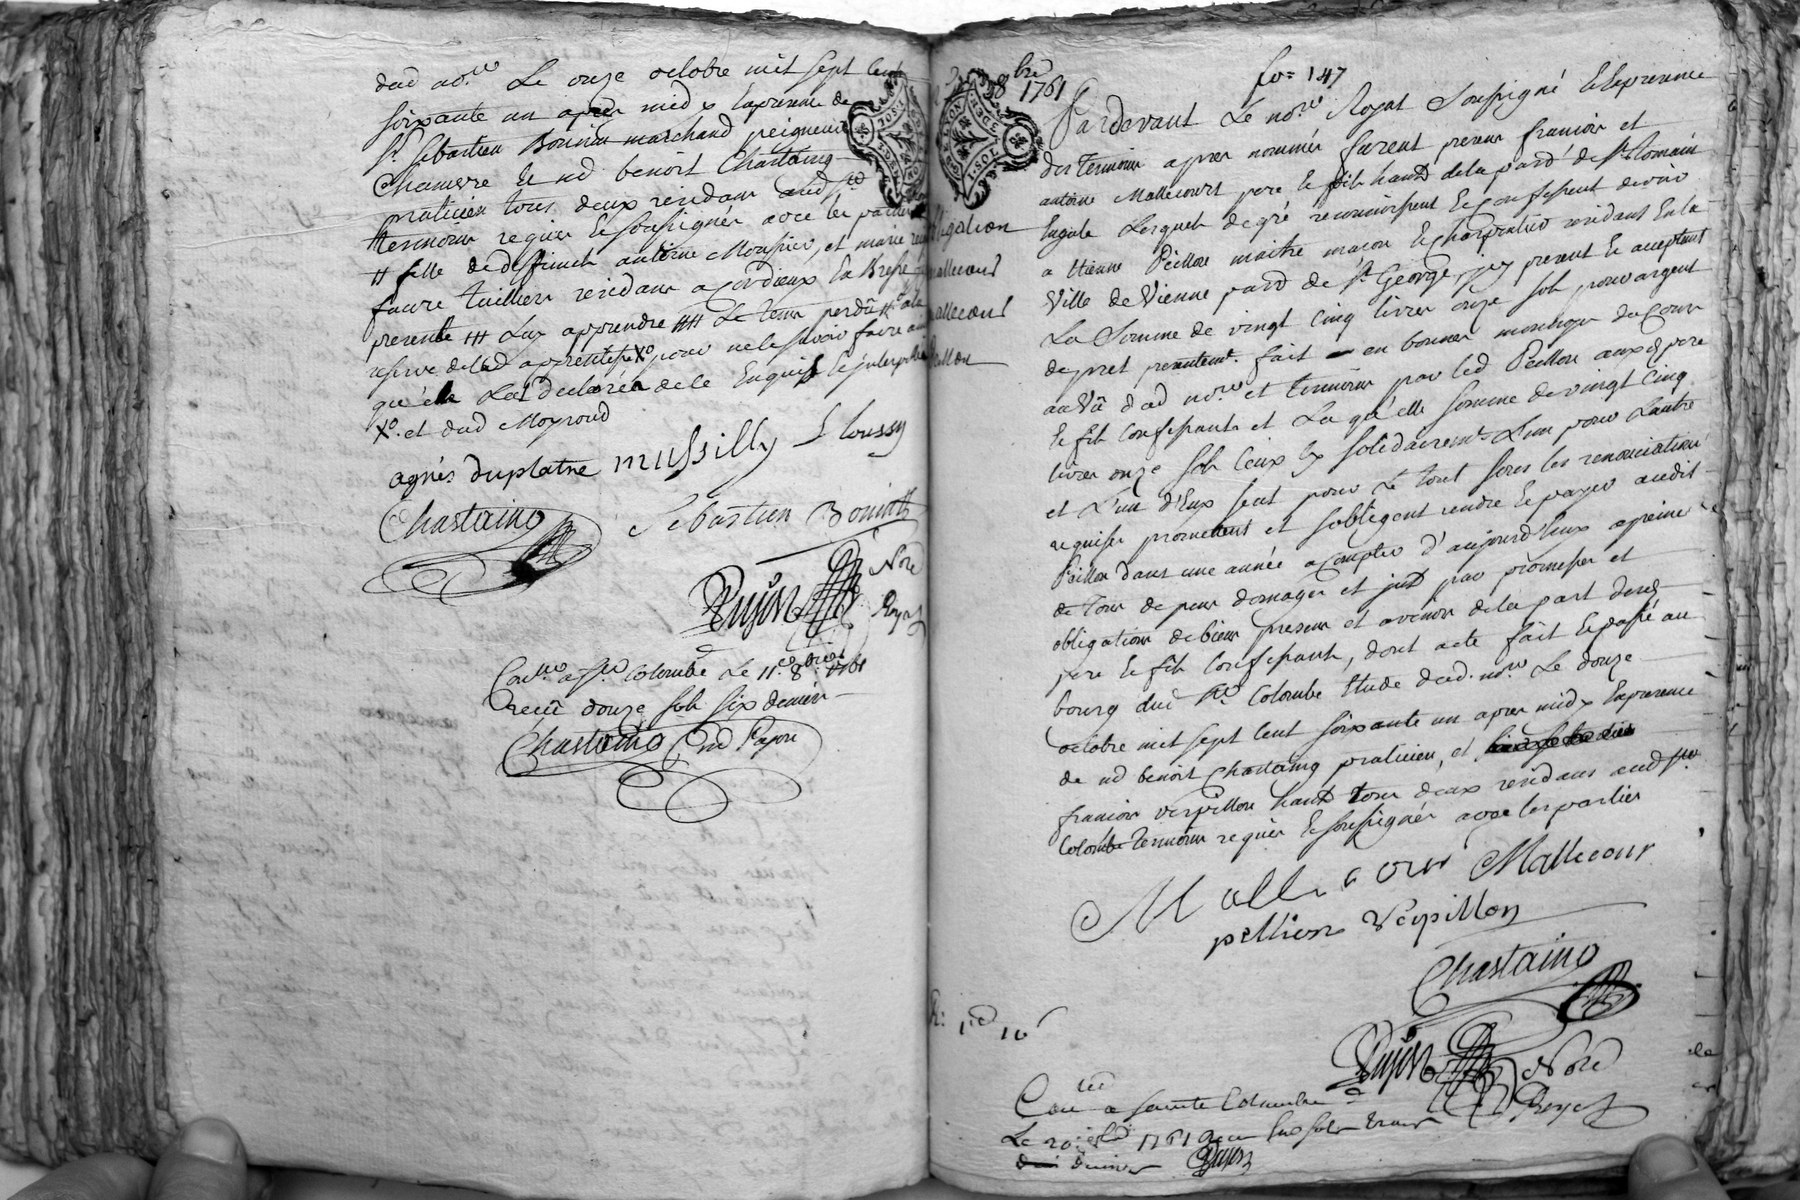 dud no.re Le onze octobre mil sept Cent
soixante un apres midy En presence de
Sr Sebastien Bonnin marchand peigneur
Chanvre et md benoit Chastaing
praticien tous deux residans aud Ste
temoins requis et soussignés avec les parties
# fille de deffunct antoine Monsieur, et marie
faure tuilliers residans a Cordieux En Bresse
presente ### Luy apprendre #### Le tems perdû
reserve de lad apprentisse Xo pour ne le scavoir faire ainsi
qu'elle La declaré de ce Enquise et interpellée
Xo. et dud Moyroud
agnès duplatre mussilly Cloussy
Chastaing Sebastien Bonin
Dujon Nore
Royal
Con.lé a Ste Colombe Le 11.e 8bre 1761
reçu douze sols six deniers
Chastaing Cmd Pajon
8bre 1761
fo= 147
Pardevant Le no.re Royal Soussigné Et En presence
des temoins apres nommés furent presens francois et
antoine Mallecourt pere et fils hand de la parr.e de St Romain
En gale Lesquels de gré reconnoissent et Confessent devoir
a Etienne Peillon maitre macon et charpentier residant En la
Ville de Vienne parr.e de St George, icy present et acceptant
La Somme de vingt Cinq livres onze sols pour argent
de pret presentemt. fait en bonnes monnoyes du Cours
au Vû dud no.re et temoins par led Peillon auxd pere
et fils Confessants et La qu'elle somme de vingt Cinq
livres onze sols Ceux Cy solidairemt L'un pour L'autre
et L'un d'Eux seul pour Le tout sous les renonciations
requises promettent et s'obligent rendre et payer audit
Peillon dans une année a Compter d'aujourd'huy a peine
de tous depens domages et intts par promesses et
obligations de biens presens et avenir de la part desd
pere et fils Confessants, dont acte fait et passé au
bourg dud Ste Colombe Etude dud. no.re Le douze
octobre mil sept Cent soixante un apres midy En presence
de md benoit Chastaing praticien, et
francois verpillon hand tous deux residans aud Ste
Colombe temoins requis et soussignés avec les parties
Obligation
Mallecourt
Mallecourt
Peillon
Mallecour Mallecour
pellion Verpillon
Chastaing
Dujon Nore
Royal
1 16
Con.lé a Sainte Colombe
Le 20 8bre 1761
deniers Dujon